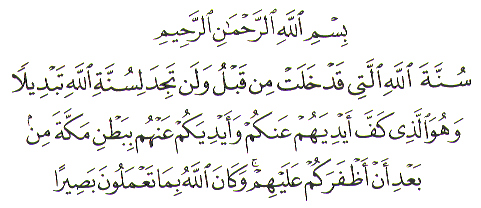 بِسْمِ ٱللَّهِ ٱلرَّحْمَٰنِ ٱلرَّحِيمِ
سُنَّةَ ٱللَّهِ ٱلَّتِى قَدْ خَلَتْ مِن قَبْلُ وَلَن تَجِدَ لِسُنَّةِ ٱللَّهِ تَبْدِيلًا
وَهُوَ ٱلَّذِى كَفَّ أَيْدِيَهُمْ عَنكُمْ وَأَيْدِيَكُمْ عَنْهُم بِبَطْنِ مَكَّةَ مِنۢ
بَعْدِ أَنْ أَظْفَرَكُمْ عَلَيْهِمْ ۚ وَكَانَ ٱللَّهُ بِمَا تَعْمَلُونَ بَصِيرًا